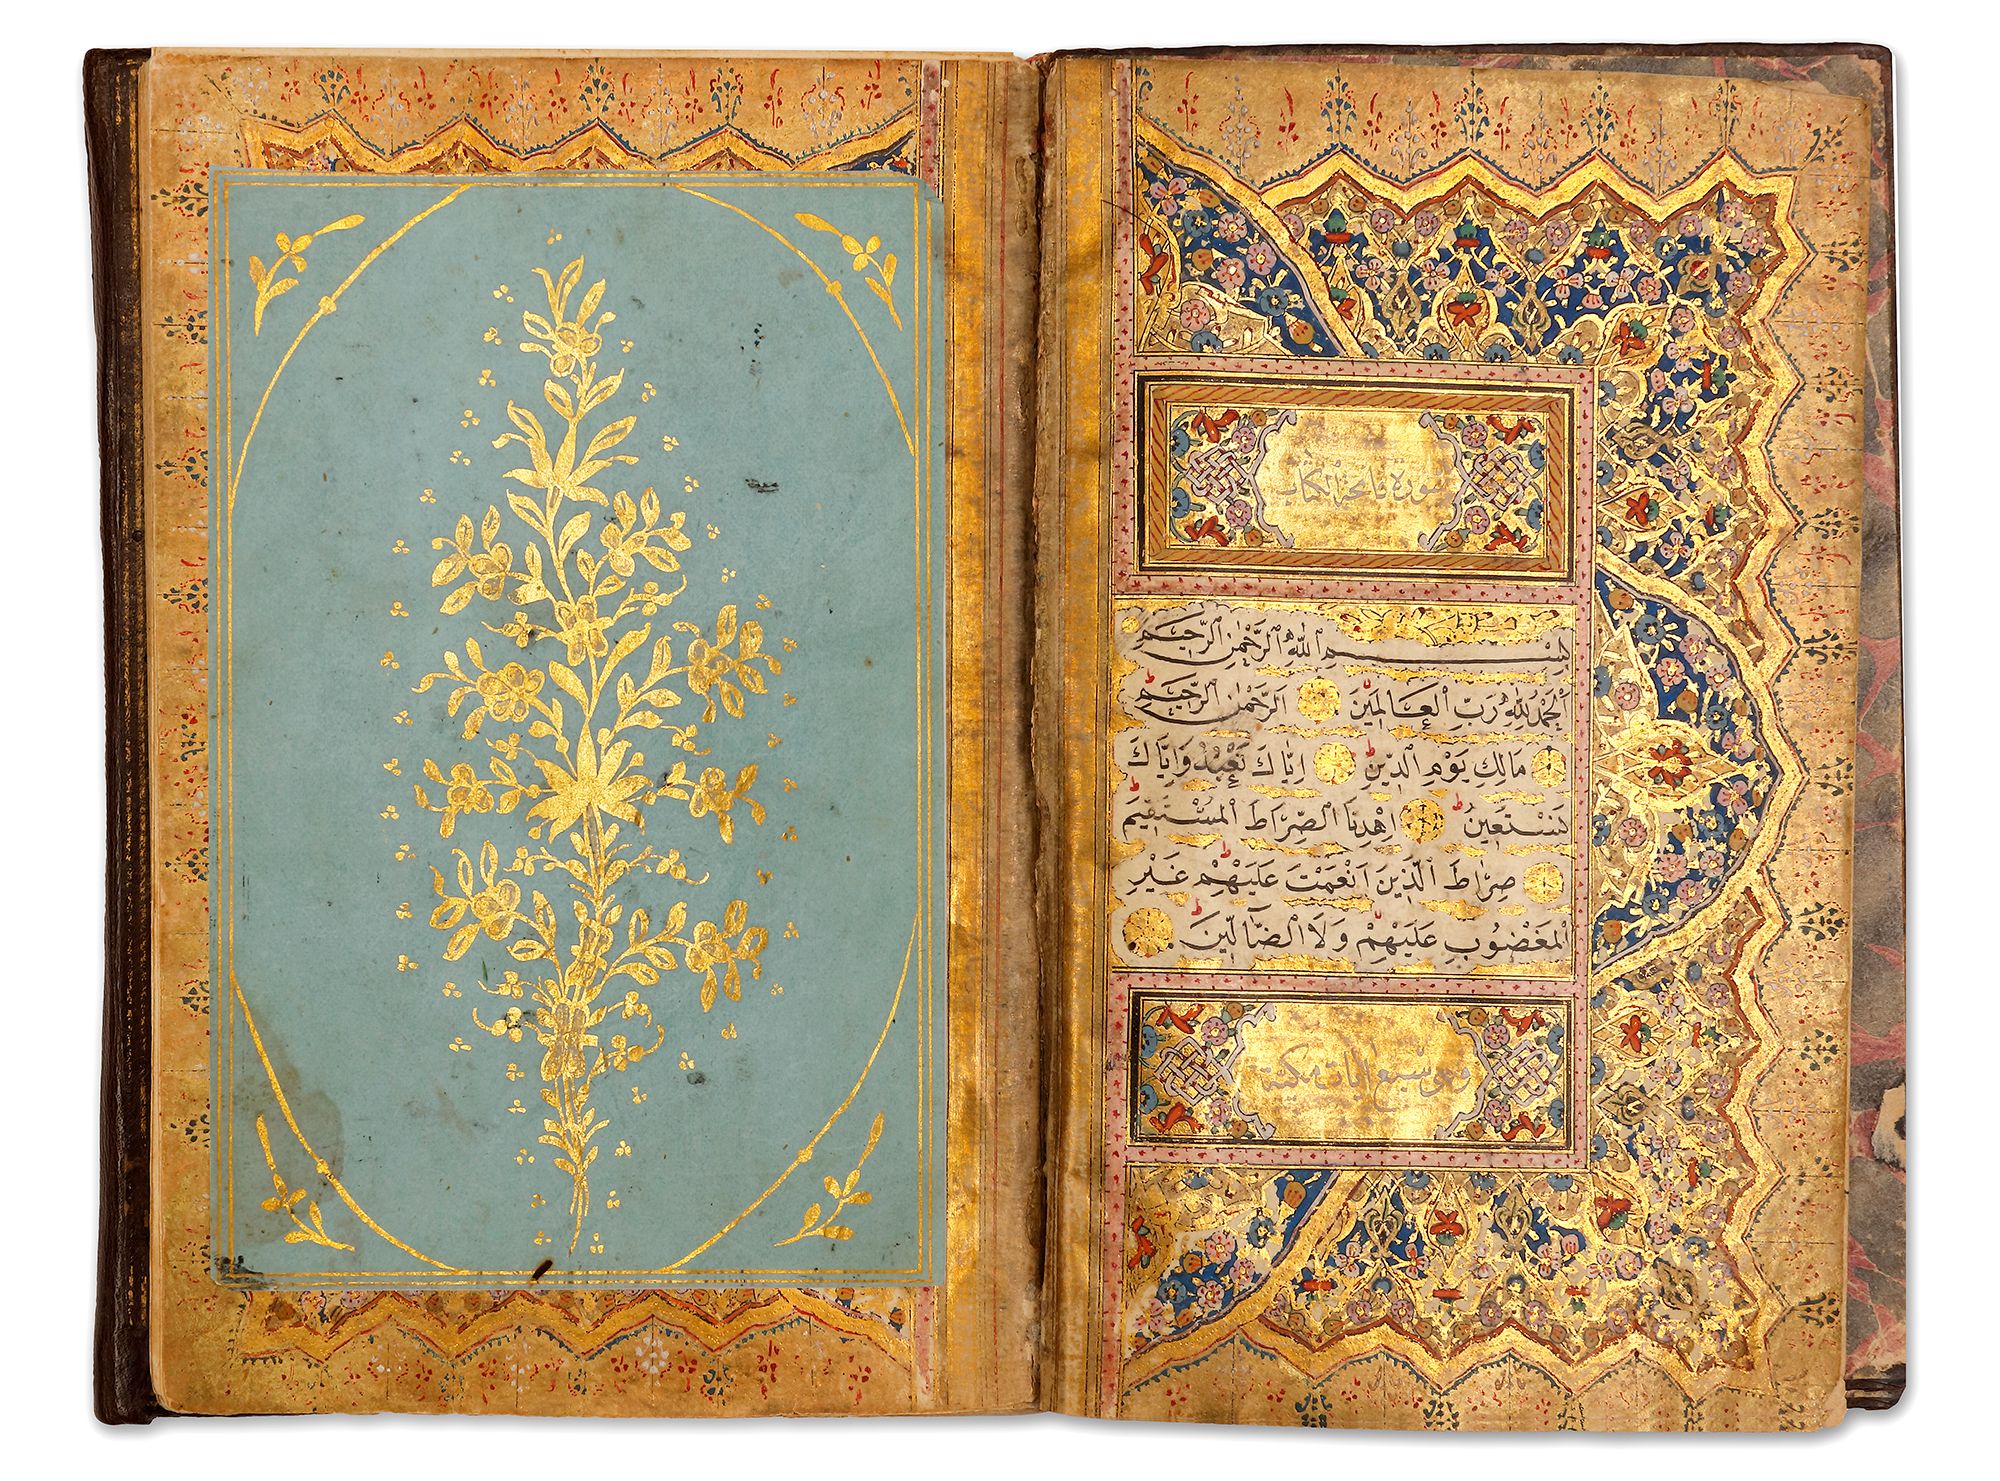 سورة فاتحة الكتاب
بِسْمِ اللّٰهِ الرَّحْمٰنِ الرَّحِيمِ
اَلْحَمْدُ لِلّٰهِ رَبِّ الْعَالَمِينَ الرَّحْمٰنِ الرَّحِيمِ
مَالِكِ يَوْمِ الدِّينِ اِيَّاكَ نَعْبُدُ وَاِيَّاكَ
نَسْتَعِينُ اِهْدِنَا الصِّرَاطَ الْمُسْتَقِيمَ
صِرَاطَ الَّذِينَ اَنْعَمْتَ عَلَيْهِمْ غَيْرِ
الْمَغْضُوبِ عَلَيْهِمْ وَلَا الضَّالِّينَ
وهي سبع ايات مكية